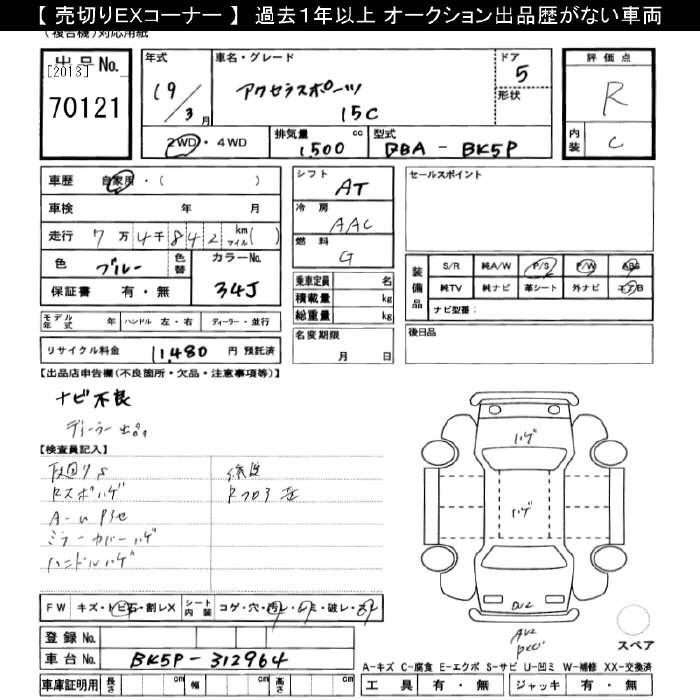 【 売切りEXコーナー 】 過去１年以上 オークション出品歴がない車両
(複合機)対応用紙
出品No.
[2013]
70121
年式 19/3月
車名・グレード
アクセラスポーツ
15C
ドア 5
形状
評価点
R
内装 C
2WD・4WD
排気量 1,500 cc
型式 DBA - BK5P
車歴 自家用・( )
車検 年 月
走行 7万4千842 km マイル( )
色 ブルー 色替
カラーNo. 34J
保証書 有・無
シフト AT
冷房 AAC
燃料 G
乗車定員 名
積載量 kg
総重量 kg
セールスポイント
装備品
S/R 純A/W P/S P/W ABS
純TV 純ナビ 革シート 外ナビ エアB
ナビ型番：
モデル年式 年 ハンドル 左・右 ディーラー・並行
名変期限 月 日
後日品
リサイクル料金 11,480 円 預託済
【出品店申告欄(不良箇所・欠品・注意事項等)】
ナビ不良
ディーラー出品
【検査員記入】
Rスポハゲ
ミラーカバーハゲ
ハンドルハゲ
ハゲ
ハゲ
FW キズ・トビ石・割レX シート内装 コゲ・穴・汚レ・シミ・破レ・スレ
登録No.
車台No. BK5P-312964
車庫証明用 長さ cm 幅 cm 高さ cm
スペア
A-キズ C-腐食 E-エクボ S-サビ U-凹ミ W-補修 XX-交換済
工具 有・無 ジャッキ 有・無